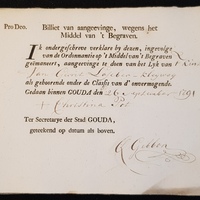 Pro Deo. Billiet van aangeevinge, wegens het
Middel van 't Begraven.
Ik ondergeschreve verklare by deezen, ingevolge
van de Ordonnantie op 't Middel van 't Begraven
geëmaneert, aangeevinge te doen van het Lyk van
als gehoorende onder de Classis van d' onvermogende.
Gedaan binnen GOUDA den 26 September 1791
+ Christina
Ter Secretarye der Stad GOUDA,
geteekend op datum als boven.